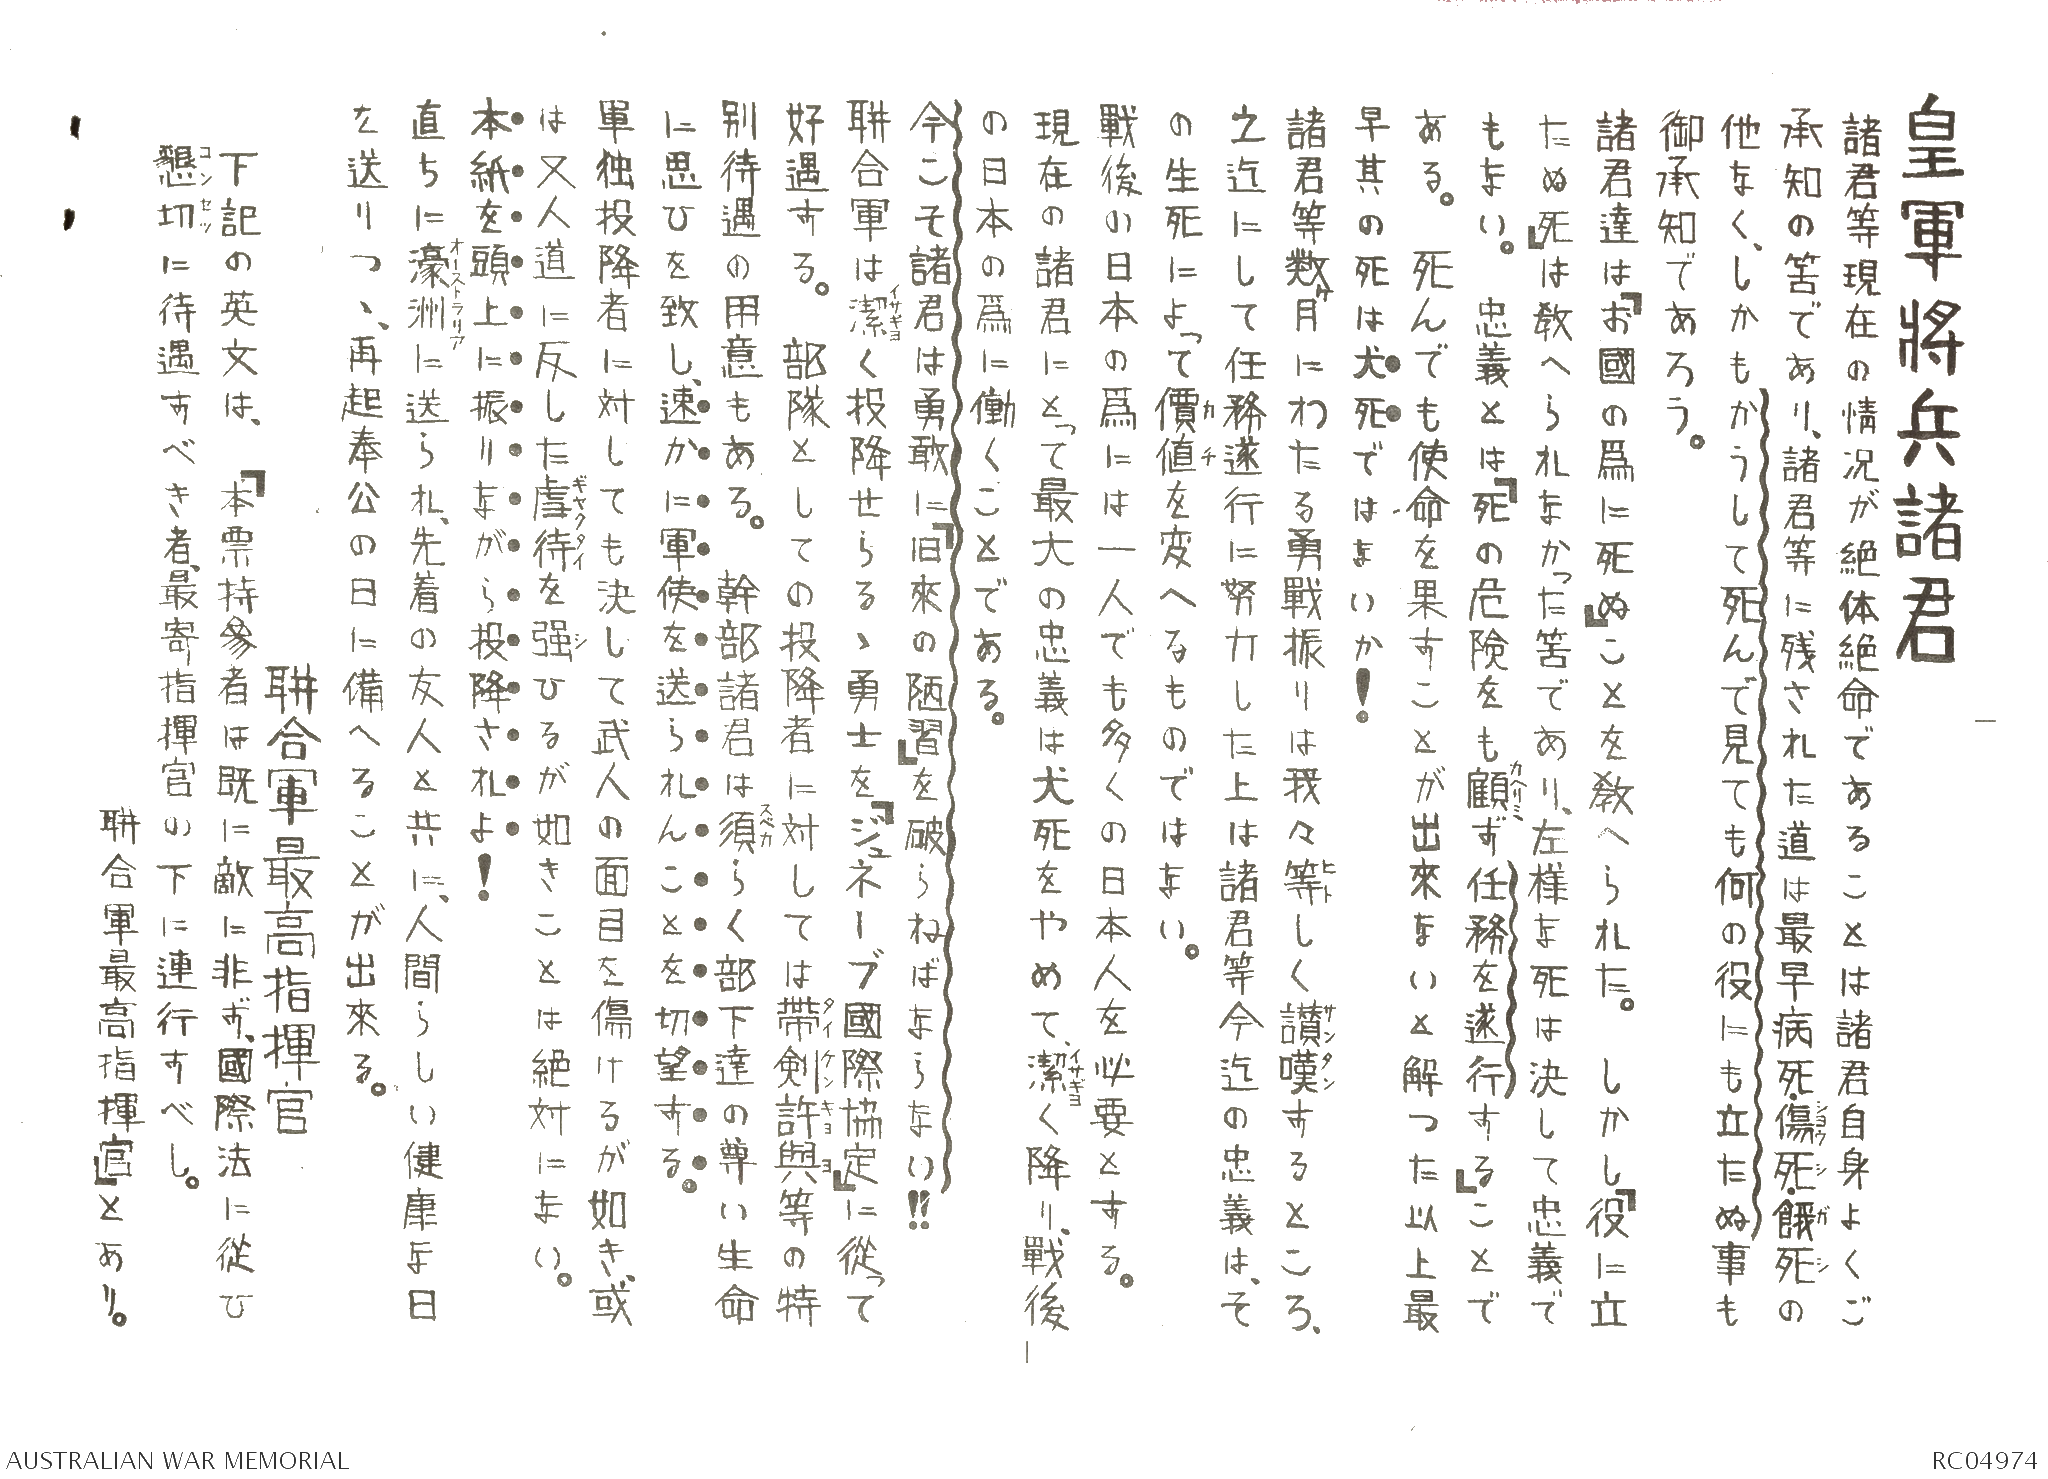 皇軍將兵諸君
諸君等現在の情況が絶体絶命であることは諸君自身よくご
承知の筈であり、諸君等に残された道は最早病死・傷死・餓死の
他なく、しかもかうして死んで見ても何の役にも立たぬ事も
御承知であろう。
諸君達は「お國の爲に死ぬ」ことを教へられた。しかし「役に立
たぬ死」は教へられなかった筈であり、左様な死は決して忠義で
もない。忠義とは「死の危険をも顧ず任務を遂行する」ことで
ある。死んでも使命を果すことが出來ないと解つた以上最
早其の死は犬死ではないか!
諸君等数ヶ月にわたる勇戰振りは我々等しく讃嘆するところ、
之迄にして任務遂行に努力した上は諸君等今迄の忠義は、そ
の生死によって價値を変へるものではない。
戰後の日本の爲には一人でも多くの日本人を必要とする。
現在の諸君にとって最大の忠義は犬死をやめて、潔く降り、戰後
の日本の爲に働くことである。
今こそ諸君は勇敢に「旧來の陋習」を破らねばならない!!
聨合軍は潔く投降せらるゝ勇士を「ジュネーブ國際協定」に從って
好遇する。部隊としての投降者に対しては帶剣許與等の特
別待遇の用意もある。幹部諸君は須らく部下達の尊い生命
に思ひを致し、速かに軍使を送られんことを切望する。
單独投降者に対しても決して武人の面目を傷けるが如き、或
は又人道に反した虐待を强ひるが如きことは絶対にない。
本紙を頭上に振りながら投降されよ!
直ちに濠洲に送られ、先着の友人と共に、人間らしい健康な日
を送りつゝ、再起奉公の日に備へることが出來る。
聨合軍最高指揮官
下記の英文は、「本票持參者は既に敵に非ず、國際法に從ひ
懇切に待遇すべき者、最寄指揮官の下に連行すべし。
聨合軍最高指揮官」とあり。
AUSTRALIAN WAR MEMORIAL
RC04974